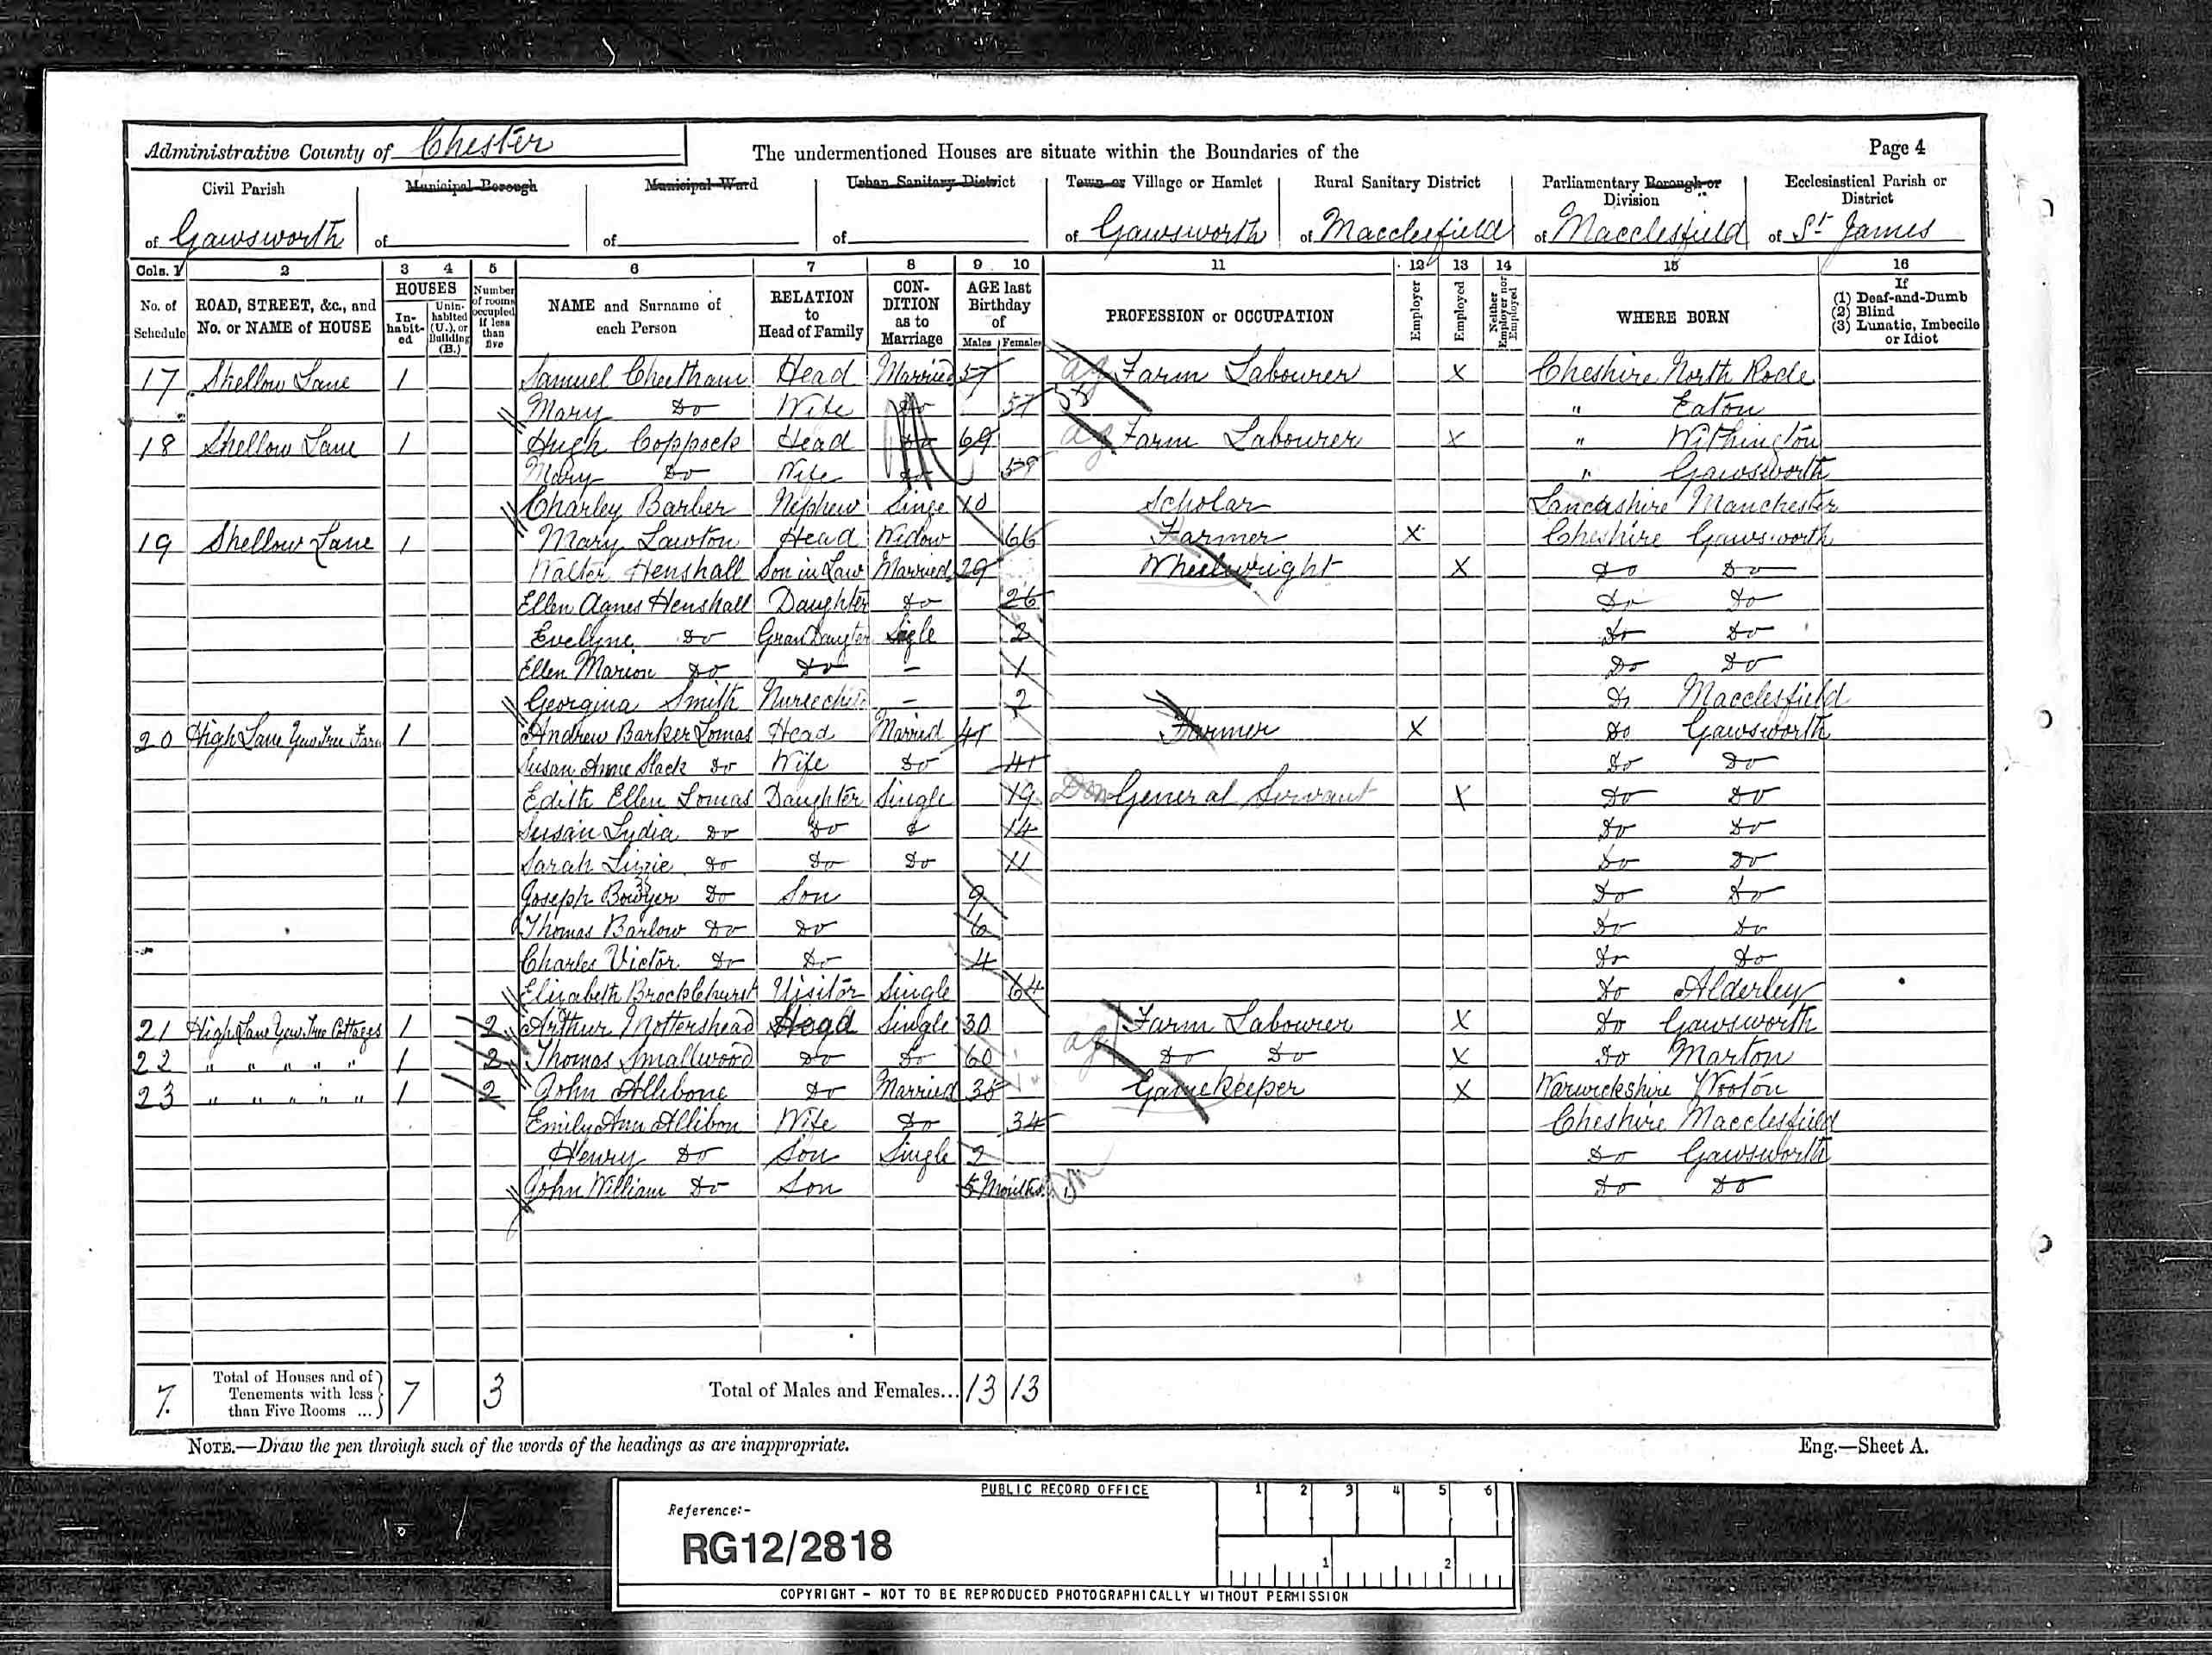 Administrative County of Chester
The undermentioned Houses are situate within the Boundaries of the
Page 4
Civil Parish of Gawsworth
Municipal Borough of
Municipal Ward of
Urban Sanitary District of
Town or Village or Hamlet of Gawsworth
Rural Sanitary District of Macclesfield
Parliamentary Borough or Division of Macclesfield
Ecclesiastical Parish or District of St James
Cols. 1 2 3 4 5 6 7 8 9 10 11 12 13 14 15 16
No. of Schedule
ROAD, STREET, &c., and No. or NAME of HOUSE
HOUSES
In-habit-ed
Unin-habited (U.), or Building (B.)
Number of rooms occupied if less than five
NAME and Surname of each Person
RELATION to Head of Family
CON-DITION as to Marriage
AGE last Birthday of
Males Females
PROFESSION or OCCUPATION
Employer
Employed
Neither Employer nor Employed
WHERE BORN
If (1) Deaf-and-Dumb (2) Blind (3) Lunatic, Imbecile or Idiot
17 Shellow Lane 1 Samuel Cheetham Head Married 57 Ag Farm Labourer X Cheshire North Rode
Mary Do Wife Do 57 " Eaton
18 Shellow Lane 1 Hugh Coppock Head Do 69 Ag Farm Labourer X " Withington
Mary Do Wife Do 59 " Gawsworth
Charley Barber Nephew Singe 10 Scholar Lancashire Manchester
19 Shellow Lane 1 Mary Lawton Head Widow 66 Farmer X Cheshire Gawsworth
Walter Henshall Son in Law Married 29 Wheelwright X Do Do
Ellen Agnes Henshall Daughter Do 26 Do Do
Evelyne Do Gran Daugter 2 Do Do
Ellen Marion Do Do - 1 Do Do
Georgina Smith Nurse child - 2 Do Macclesfield
20 High Lane Yew Tree Farm 1 Andrew Barker Lomas Head Married 41 Farmer X Do Gawsworth
Susan Anne Slack Do Wife Do 41 Do Do
Edith Ellen Lomas Daughter Single 19 Dom General Servant X Do Do
Susan Lydia Do Do Do 14 Do Do
Sarah Lizzie Do Do Do 11 Do Do
Joseph Bowyer Do Son 9 Do Do
Thomas Barlow Do Do 6 Do Do
Charles Victor Do Do 4 Do Do
Elizabeth Brocklehurst Visitor Single 64 Do Alderley
21 High Lane Yew Tree Cottages 1 2 Arthur Mottershead Head Single 30 Ag Farm Labourer X Do Gawsworth
22 " " " " " 1 2 Thomas Smallwood Do Do 60 Do Do X Do Marton
23 " " " " " 1 2 John Allibone Do Married 35 Gamekeeper X Warwickshire Wooton
Emily Ann Allibon Wife Do 34 Cheshire Macclesfield
Henry Do Son Single 2 Do Gawsworth
John William Do Son 5 Months Do Do
7 Total of Houses and of Tenements with less than Five Rooms ... 7 3 Total of Males and Females... 13 13
NOTE.—Draw the pen through such of the words of the headings as are inappropriate.
Eng.—Sheet A.
PUBLIC RECORD OFFICE
1 2 3 4 5 6
Reference:-
RG12/2818
1 2
COPYRIGHT - NOT TO BE REPRODUCED PHOTOGRAPHICALLY WITHOUT PERMISSION